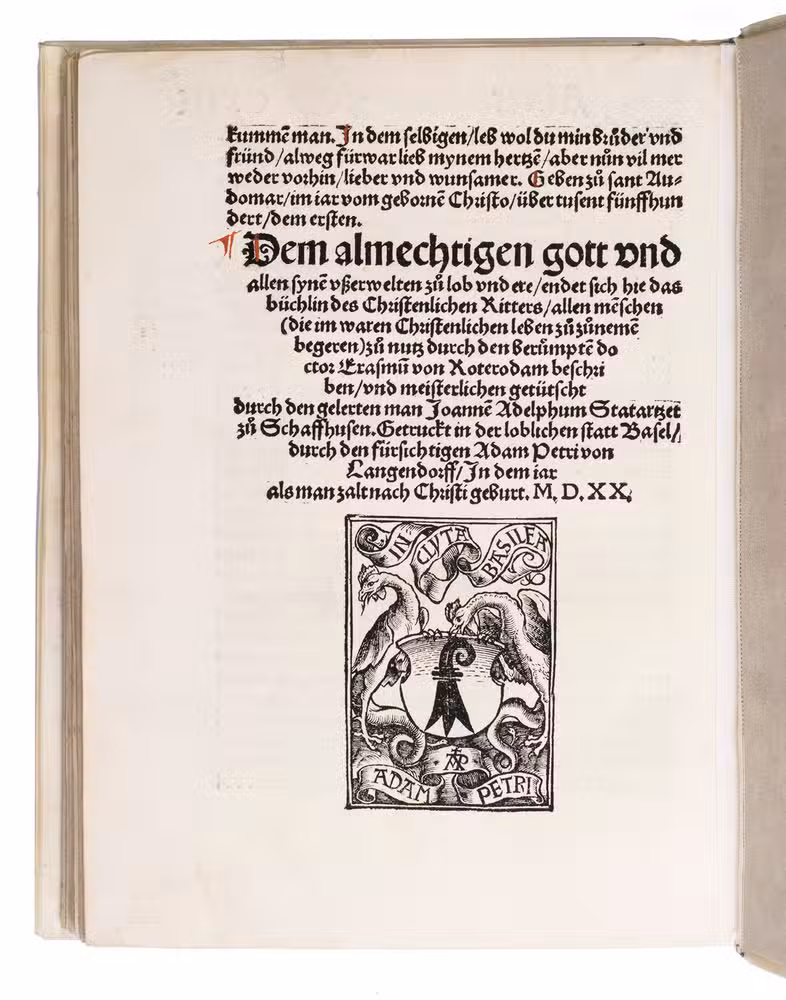 kummē man. In dem selbigen/leb wol du min brůder vnd
fründ/alweg fürwar lieb mynem hertzē/aber nůn vil mer
weder vorhin/lieber vnd wunsamer. Geben zů sant Au⸗
domar/im iar vom gebornē Christo/über tusent fünffhun
dert/dem ersten.
¶ Dem almechtigen gott vnd
allen synē vßerwelten zů lob vnd ere/endet sich hie das
büchlin des Christenlichen Ritters/allen mēschen
(die im waren Christenlichen leben zů zůnemē
begeren) zů nutz durch den berůmptē do
ctor Erasmū von Roterodam beschri
ben/vnd meisterlichen getütscht
durch den gelerten man Joannē Adelphum Statartzet
zů Schaffhusen. Getruckt in der loblichen statt Basel/
durch den fürsichtigen Adam Petri von
Langendorff/In dem iar
als man zalt nach Christi geburt. M. D. XX.
IN CLYTA BASILEA
AP
ADAM PETRI